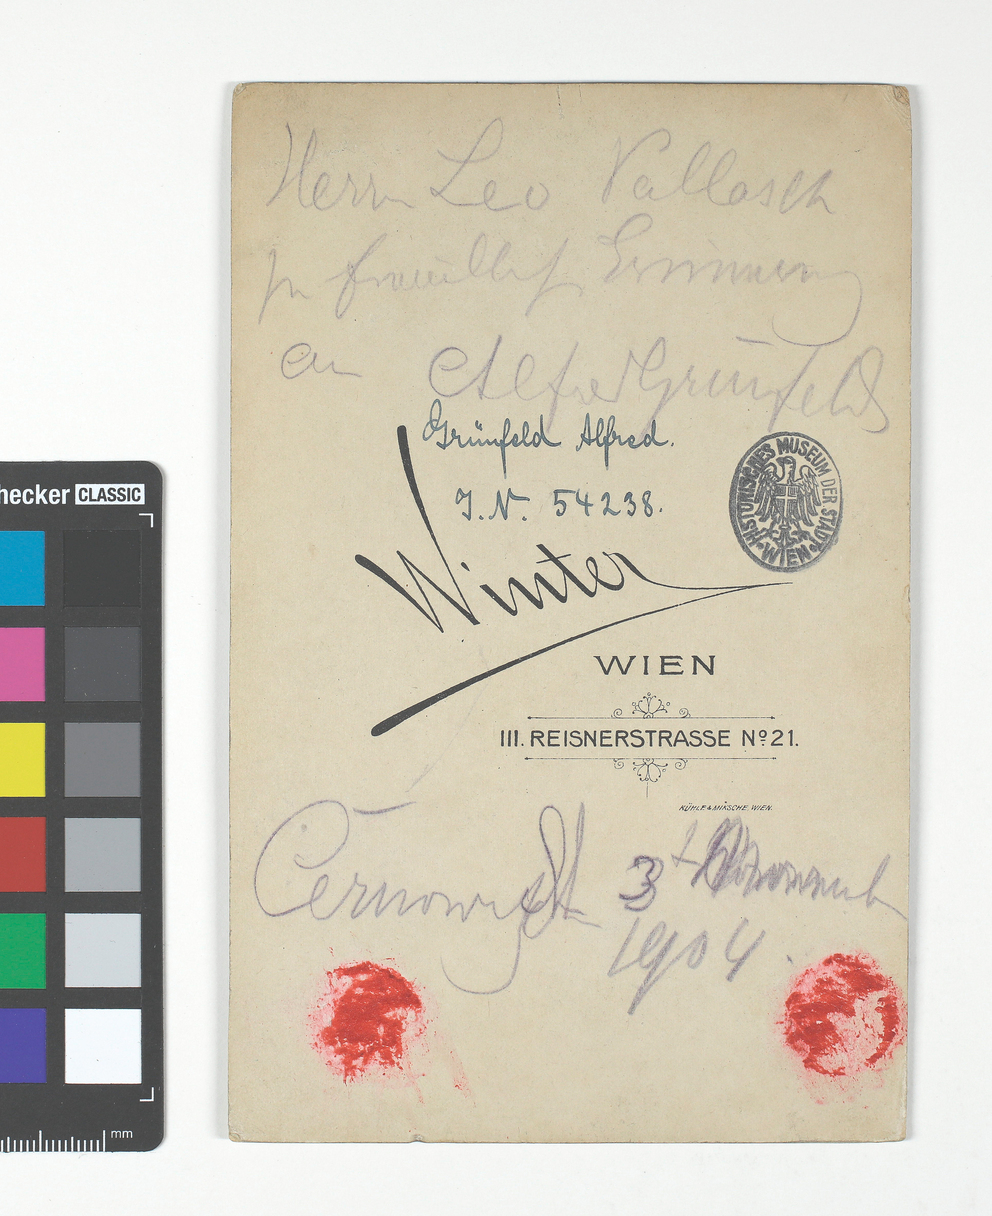 hecker CLASSIC
Herrn Leo Pallasch
zu freundlich Erinnerung
an Alfred Grünfeld
Grünfeld Alfred.
I.N. 54238.
HISTORISCHES MUSEUM DER STADT WIEN
Winter
WIEN
III. REISNERSTRASSE Nº 21.
KÜHLE & MIKSCHE. WIEN.
3
1904.
mm